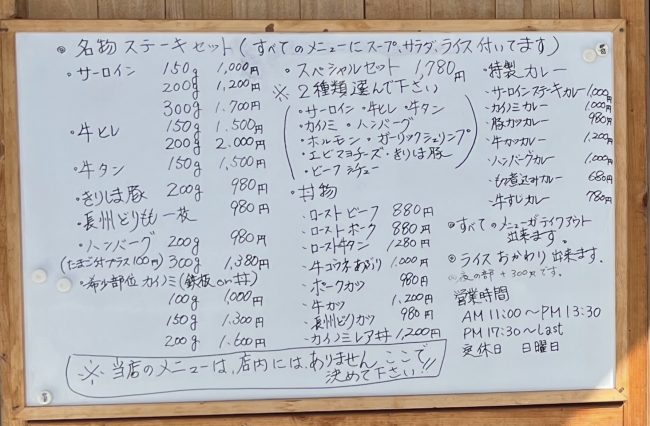 ◎ 名物 ステーキセット(すべてのメニューにスープ、サラダ、ライス付いてます)
・サーロイン 150g 1,000円
200g 1,200円
300g 1.700円
・牛ヒレ 150g 1.500円
200g 2.000円
・牛タン 150g 1,500円
・きりしま豚 200g 980円
・長州どりもも一枚 980円
・ハンバーグ 200g 980円
(たまご付プラス100円) 300g 1,380円
・希少部位 カイノミ(鉄板or丼)
100g 1000円
150g 1.300円
200g 1.600円
・スペシャルセット 1,780円
※ 2種類選んで下さい
・サーロイン ・牛ヒレ ・牛タン
・カイノミ ・ハンバーグ
・ホルモン ・ガーリックシュリンプ
・エビマヨチーズ・きりしま豚
・ビーフシチュー
・丼物
・ローストビーフ 880円
・ローストポーク 880円
・ロースト牛タン 1280円
・牛コウネあぶり 1.000円
・ポークカツ 980円
・牛カツ 1.200円
・長州どりカツ 980円
・カイノミレア丼 1,200円
・特製カレー
・サーロインステーキカレー 1,000円
・カイノミカレー 1.000円
・豚カツカレー 980円
・牛カツカレー 1.200円
・ハンバーグカレー 1,000円
・もつ煮込みカレー 680円
・牛すじカレー 780円
◎すべてのメニューがテイクアウト
出来ます。
◎ ライスおかわり出来ます。
夜の部 +300円です。
営業時間
AM 11:00～PM 13:30
PM 17:30～Last
定休日 日曜日
※ 当店のメニューは、店内には、ありません ここで
決めて下さい!!